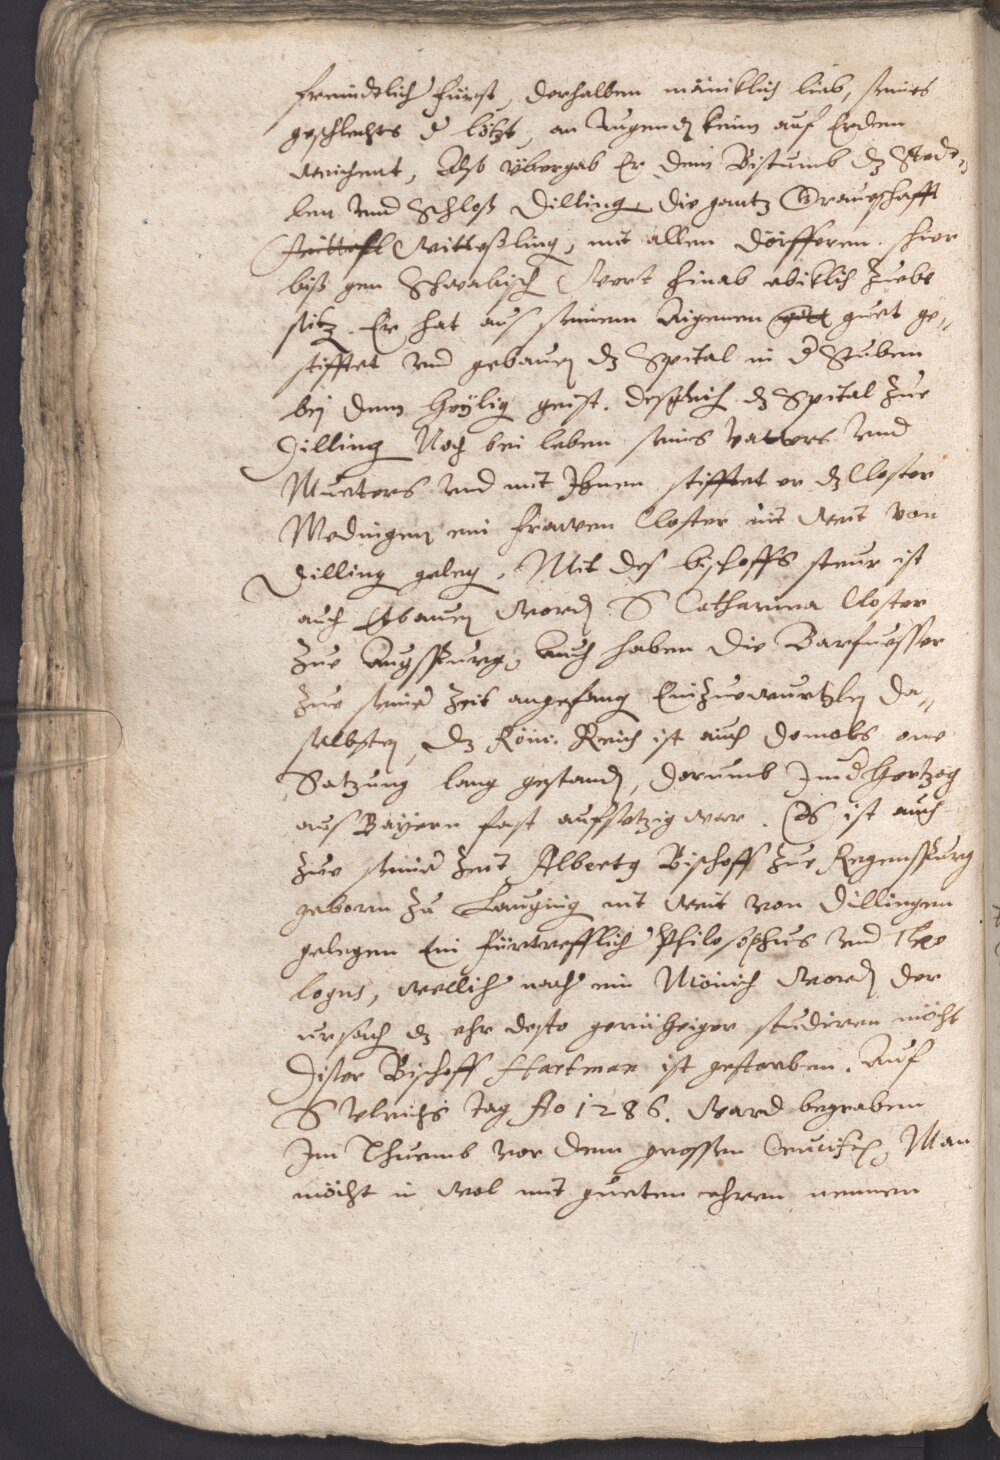 freindtlich Fürst, derhalben mäniklich lieb, seines
geschlechts d letst, an Tugendt keim auf Erden
weichent, Also übergab Er dem Bistumb dz Stedt-
len vnd Schloß Dilling, die gantz Graueschafft
Wittesling, mit allen Dörfferen. hier
biß gen Schwabisch Wert hinab ebiklich zuebe
sitz. Er hat aus seinem Aigenen guet ge-
stifftet vnd gebauen dz Spital in d Stuben
bei dem heylig geist. desgleich dz Spital Zue
Dilling Noch bei leben seines vatters vnd
Mueters vnd mit Ihnen stifftet er dz Closter
Medingen ein frawen Closter nit weit von
Dilling geleg. Mit des bischoffs steur ist
auch Erbauen word S Catharina Closter
Zue Augspurg, Auch haben die Barfuesser
Zue seiner Zeit angefang Einzuewurtzlen da-
selbsten, dz Röm. Reich ist auch domals one
Satzung lang gestand, darumb Jm d Hertzog
aus Bayern fast aufsetzig war. Es ist auch
Zue seiner Zeit Albertus Bischoff Zue Regenspurg
geborn Zu Lauging nit weit von Dillingen
gelegen Ein fürtrefflich Philosophus vnd Theo
logus, wellich nach ein Mönich word der
ursach dz ehr desto gerüheiger studiren möcht
Diser Bischoff Hartman ist gestorben. Auf
S Vlrichs tag Ao 1286. ward begraben
Jm Thuemb vor dem grossen Crucifix, Man
möcht in wol mit gueten ehren nennen